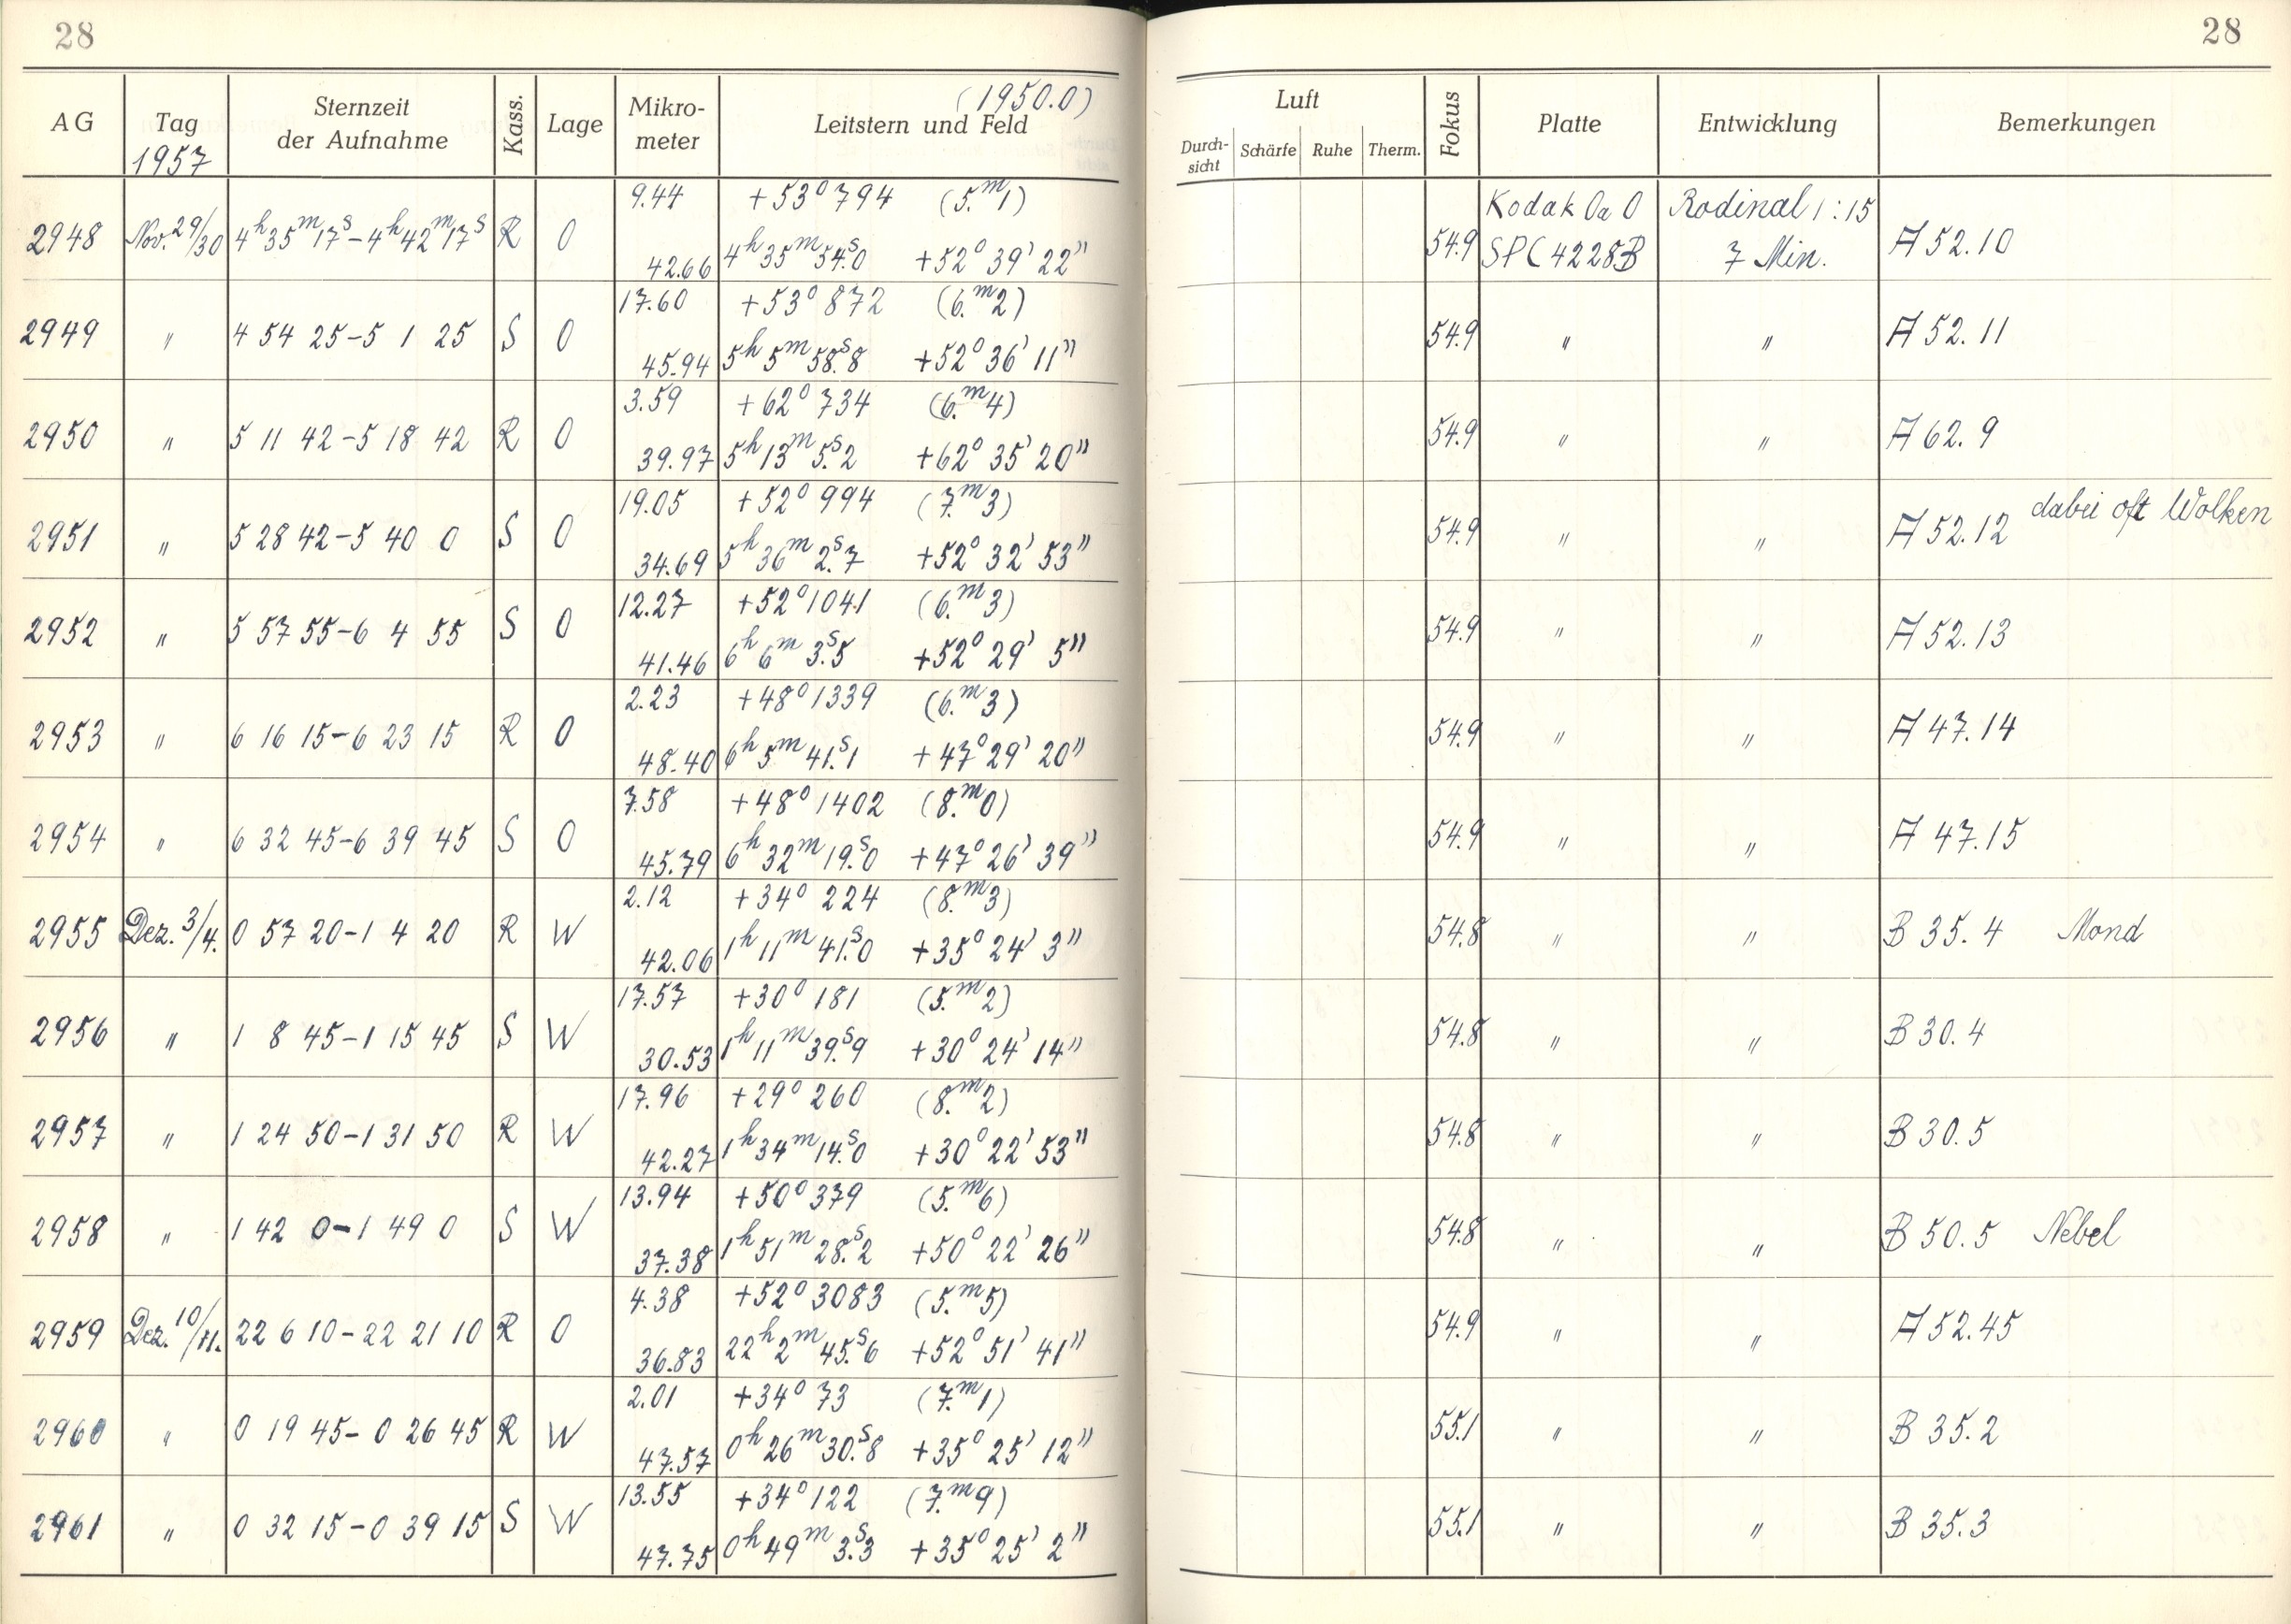 28
28
AG
Tag
1957
Sternzeit
der Aufnahme
Kass.
Lage
Mikro-
meter
(1950.0)
Leitstern und Feld
Luft
Durch-
sicht
Schärfe
Ruhe
Therm.
Fokus
Platte
Entwicklung
Bemerkungen
9.44 +53° 794 (5.ᵐ1) Kodak 0a 0 Rodinal 1:15
2948 Nov. 29/30 4ʰ35ᵐ17ˢ-4ʰ42ᵐ17ˢ R O 54.9 A 52.10
42.66 4ʰ 35ᵐ 54.ˢ0 +52° 39' 22" SPC 4228B 7 Min.
17.60 +53° 872 (6.ᵐ2)
2949 " 4 54 25-5 1 25 S O 54.9 " " A 52.11
45.94 5ʰ 5ᵐ 58.ˢ8 +52° 36' 11"
3.59 +62° 734 (6.ᵐ4)
2950 " 5 11 42-5 18 42 R O 54.9 " " A 62.9
39.97 5ʰ 13ᵐ 5.ˢ2 +62° 35' 20"
19.05 +52° 994 (7.ᵐ3)
2951 " 5 28 42-5 40 0 S O 54.9 " " A 52.12 dabei oft Wolken
34.69 5ʰ 36ᵐ 2.ˢ7 +52° 32' 53"
12.27 +52° 1041 (6.ᵐ3)
2952 " 5 57 55-6 4 55 S O 54.9 " " A 52.13
41.46 6ʰ 6ᵐ 3.ˢ5 +52° 29' 5"
2.23 +48° 1339 (6.ᵐ3)
2953 " 6 16 15-6 23 15 R O 54.9 " " A 47.14
48.40 6ʰ 5ᵐ 41.ˢ1 +47° 29' 20"
7.58 +48° 1402 (8.ᵐ0)
2954 " 6 32 45-6 39 45 S O 54.9 " " A 47.15
45.79 6ʰ 32ᵐ 19.ˢ0 +47° 26' 39"
2.12 +34° 224 (8.ᵐ3)
2955 Dez. 3/4. 0 57 20-1 4 20 R W 54.8 " " B 35.4 Mond
42.06 1ʰ 11ᵐ 41.ˢ0 +35° 24' 3"
17.57 +30° 181 (5.ᵐ2)
2956 " 1 8 45-1 15 45 S W 54.8 " " B 30.4
30.53 1ʰ 11ᵐ 39.ˢ9 +30° 24' 14"
17.96 +29° 260 (8.ᵐ2)
2957 " 1 24 50-1 31 50 R W 54.8 " " B 30.5
42.27 1ʰ 34ᵐ 14.ˢ0 +30° 22' 53"
13.94 +50° 379 (5.ᵐ6)
2958 " 1 42 0-1 49 0 S W 54.8 " " B 50.5 Nebel
37.38 1ʰ 51ᵐ 28.ˢ2 +50° 22' 26"
4.38 +52° 3083 (5.ᵐ5)
2959 Dez. 10/11. 22 6 10-22 21 10 R O 54.9 " " A 52.45
36.83 22ʰ 2ᵐ 45.ˢ6 +52° 51' 41"
2.01 +34° 73 (7.ᵐ1)
2960 " 0 19 45-0 26 45 R W 55.1 " " B 35.2
47.57 0ʰ 26ᵐ 30.ˢ8 +35° 25' 12"
13.55 +34° 122 (7.ᵐ9)
2961 " 0 32 15-0 39 15 S W 55.1 " " B 35.3
47.75 0ʰ 49ᵐ 3.ˢ3 +35° 25' 2"